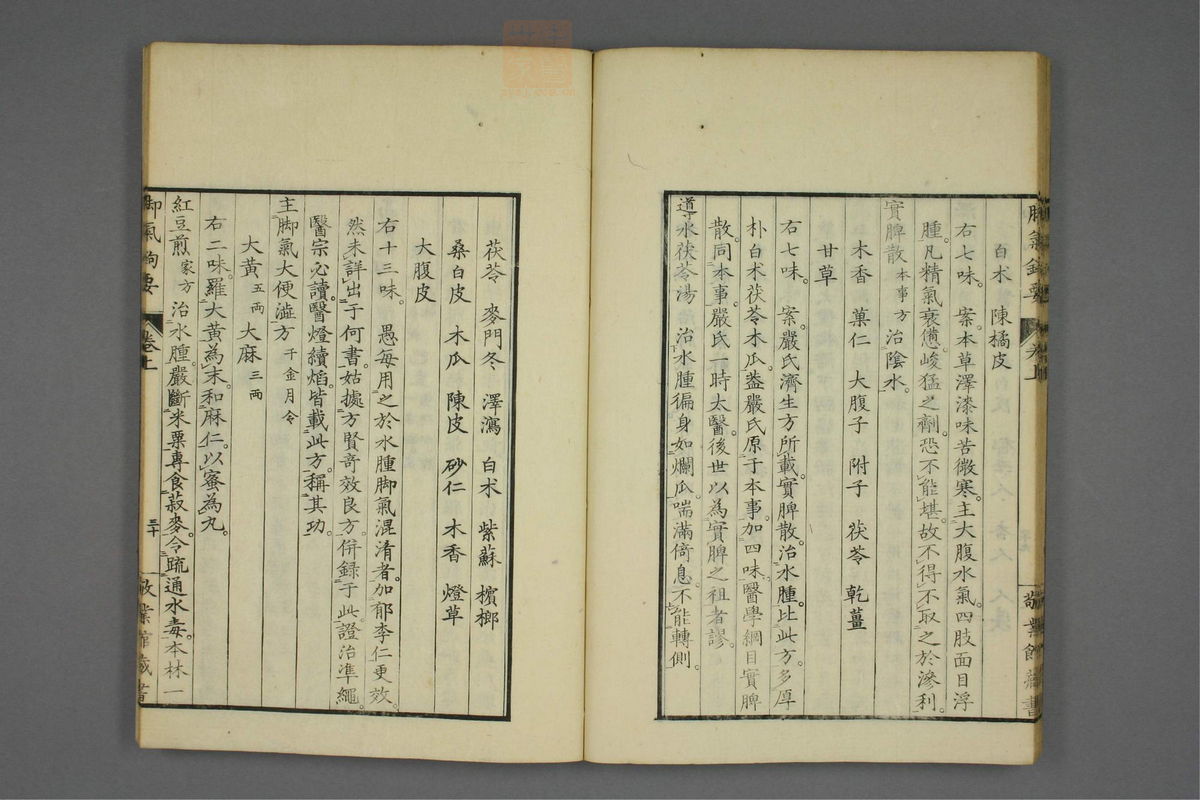 脚氣鉤要 卷上 敬業館藏書
白木 陳橘皮
右七味。案。本草澤漆味苦微寒。主大腹水氣。四肢面目浮
腫。凡精氣衰憊。峻猛之劑。恐不能堪。故不得不取之於滲利。
實脾散 本事方 治陰水。
木香 菓仁 大腹子 附子 茯苓 乾薑
甘草
右七味。 案。嚴氏濟生方所載。實脾散。治水腫。比此方。多厚
朴白朮茯苓木瓜。葢嚴氏原于本事。加四味。醫學綱目實脾
散。同本事。嚴氏一時太醫。後世以為實脾之祖者。謬。
導水茯苓湯 治水腫徧身如爛瓜。喘滿倚息。不能轉側。
茯苓 麥門冬 澤瀉 白朮 紫蘇 檳榔
桑白皮 木瓜 陳皮 砂仁 木香 燈草
大腹皮
右十三味。 愚每用之於水腫脚氣混淆者。加郁李仁更效。
然未詳出于何書。姑據方賢奇效良方。併録于此。證治準繩。
醫宗必讀。醫燈續焰。皆載此方。稱其功。
主脚氣大便澁方 千金月令
大黃 五兩 大麻 三兩
右二味。羅大黃為末。和麻仁。以蜜為丸。
紅豆煎 家方 治水腫。嚴斷米粟。專食菽麥。令疏通水毒。本林一
脚氣鉤要 卷上 三十 敬業館藏書